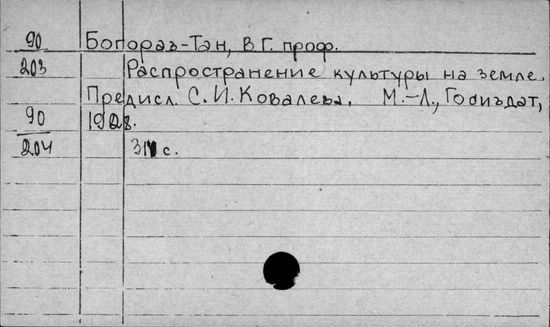 90 Богораз-Тан, В.Г. проф.
203 Распространение культуры на земле.
Предисл. С.И. Ковалева. М.-Л., Госиздат,
90 1928.
204 314 с.